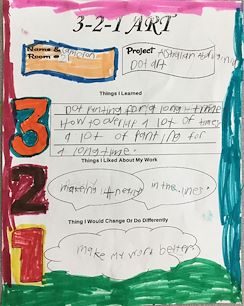 3-2-1 ART
Name & Cameron
Room #
Project Australian
Dot art
Things I Learned
3
Dot painting for a long time
How to a lot of times
a lot of panting for
a long time.
Things I Liked About My Work
2
making it neat in the lines
Thing I Would Change Or Do Differently
1
make my work better